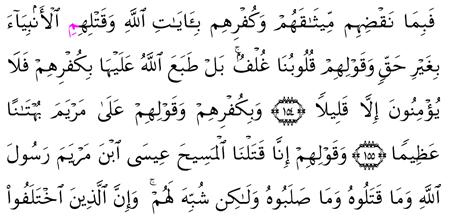 فَبِمَا نَقْضِهِم مِّيثَٰقَهُمْ وَكُفْرِهِم بِـَٔايَٰتِ ٱللَّهِ وَقَتْلِهِمِ ٱلْأَنۢبِيَآءَ
بِغَيْرِ حَقٍّ وَقَوْلِهِمْ قُلُوبُنَا غُلْفٌۢ ۚ بَلْ طَبَعَ ٱللَّهُ عَلَيْهَا بِكُفْرِهِمْ فَلَا
يُؤْمِنُونَ إِلَّا قَلِيلًا ﴿١٥٤﴾ وَبِكُفْرِهِمْ وَقَوْلِهِمْ عَلَىٰ مَرْيَمَ بُهْتَٰنًا
عَظِيمًا ﴿١٥٥﴾ وَقَوْلِهِمْ إِنَّا قَتَلْنَا ٱلْمَسِيحَ عِيسَى ٱبْنَ مَرْيَمَ رَسُولَ
ٱللَّهِ وَمَا قَتَلُوهُ وَمَا صَلَبُوهُ وَلَٰكِن شُبِّهَ لَهُمْ ۚ وَإِنَّ ٱلَّذِينَ ٱخْتَلَفُوا۟